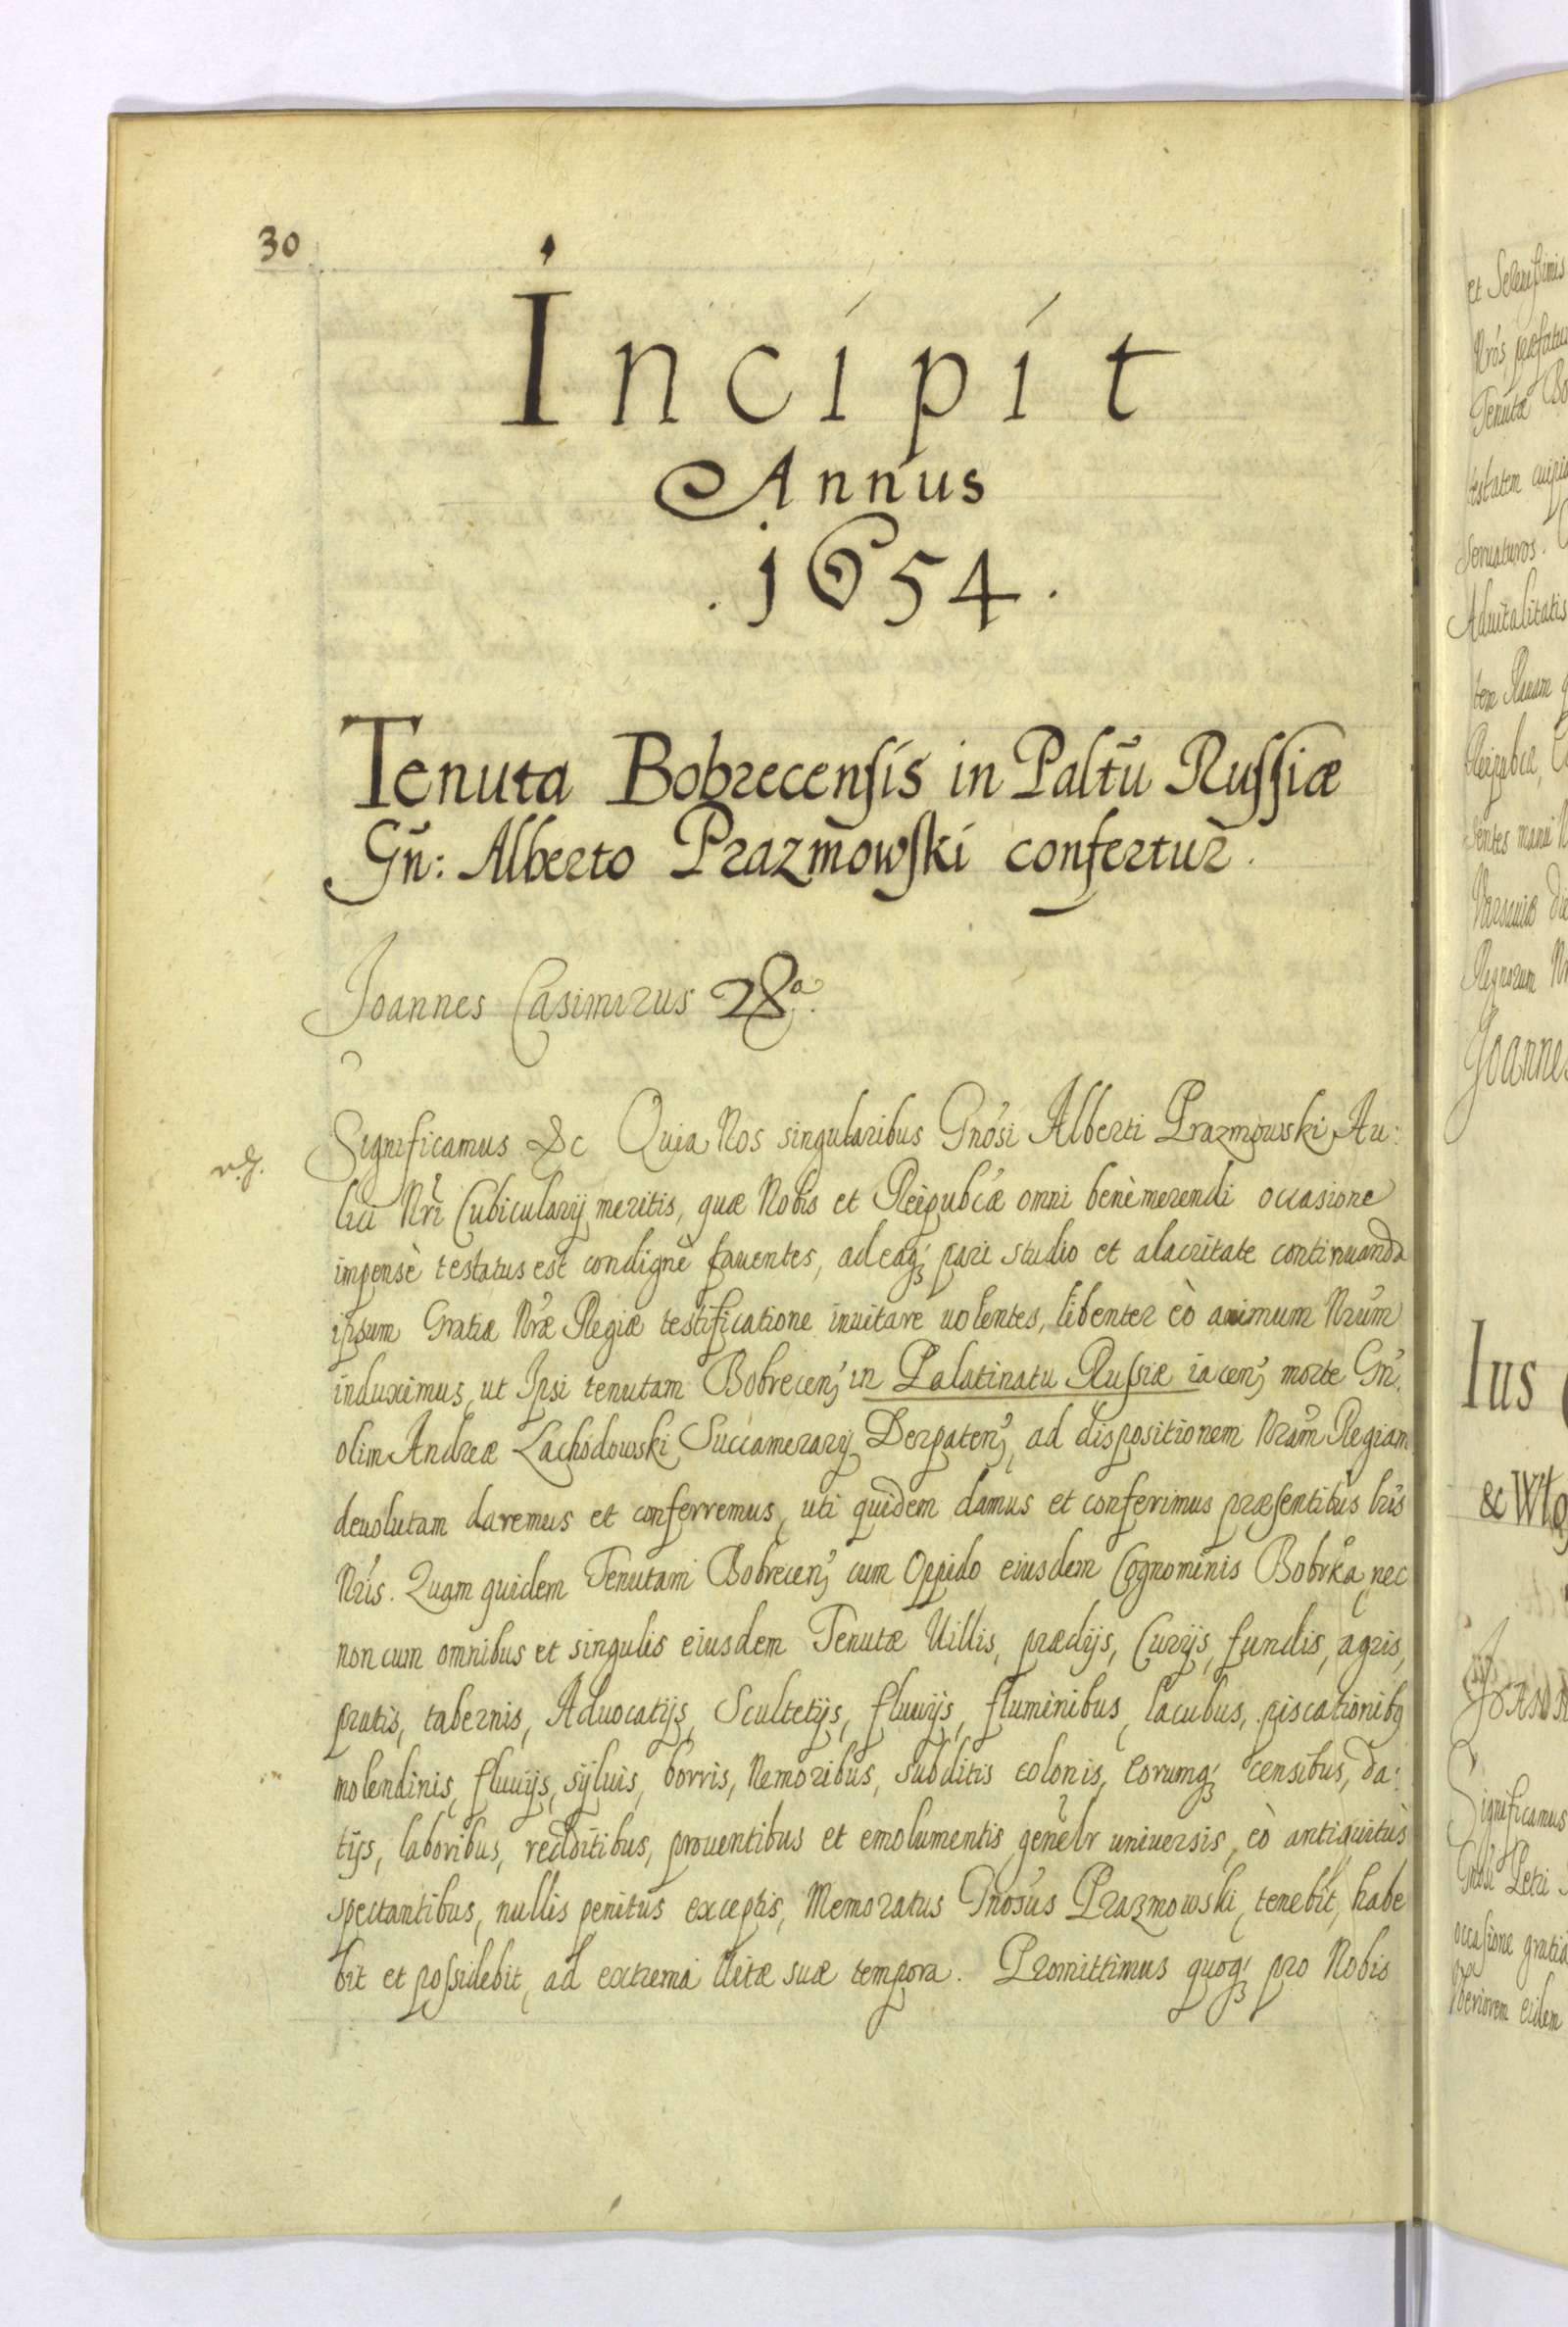 30
Incipit
Annus
.1654.
Tenuta Bobrecensis in Paltũ Russiæ
Gñ: Alberto Prazmowski confertur.
Joannes Casimirus
Significamus &c Quia Nos singularibus Gnosi Alberti Prazmowski Au:
lici Nri Cubicularij meritis, quæ Nobis et Reipubcæ omni benèmerendi occasione
impensè testatus est condignè fauentes, ad eaq; pari studio et alacritate continuanda
ipsum Gratiæ Nræ Regiæ testificatione inuitare uolentes, libenter eò animum Nrum
induximus, ut Ipsi tenutam Bobrecen; in Palatinatu Russiæ iacen; morte Gn:
olim Andreæ Lachodowski Succamerarij Derpaten; ad dispositionem Nram Regiam
deuolutam daremus et conferremus, uti quidem damus et conferimus præsentibus lris
Nris. Quam quidem Tenutam Bobrecen; cum Oppido eiusdem Cognominis Bobrka, nec
non cum omnibus et singulis eiusdem Tenutæ Uillis, prædijs, Curijs, fundis, agris,
pratis, tabernis, Aduocatijs, Scultetijs, fluuijs, fluminibus, lacubus, piscationibq
molendinis, fluuijs, syluis, borris, Nemoribus, Subditis colonis, Eorumq; censibus, da:
tijs, laboribus, redditibus, prouentibus et emolumentis genelr uniuersis, eò antiquitùs
spectantibus, nullis penitus exceptis, Memoratus Gnosus Prazmowski, tenebit, habe
bit et possidebit, ad extrema Uitæ suæ tempora. Promittimus quoq; pro Nobis
Ius